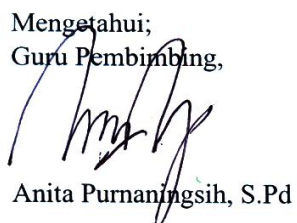 Mengetahui;
Guru Pembimbing,
Anita Purnaningsih, S.Pd